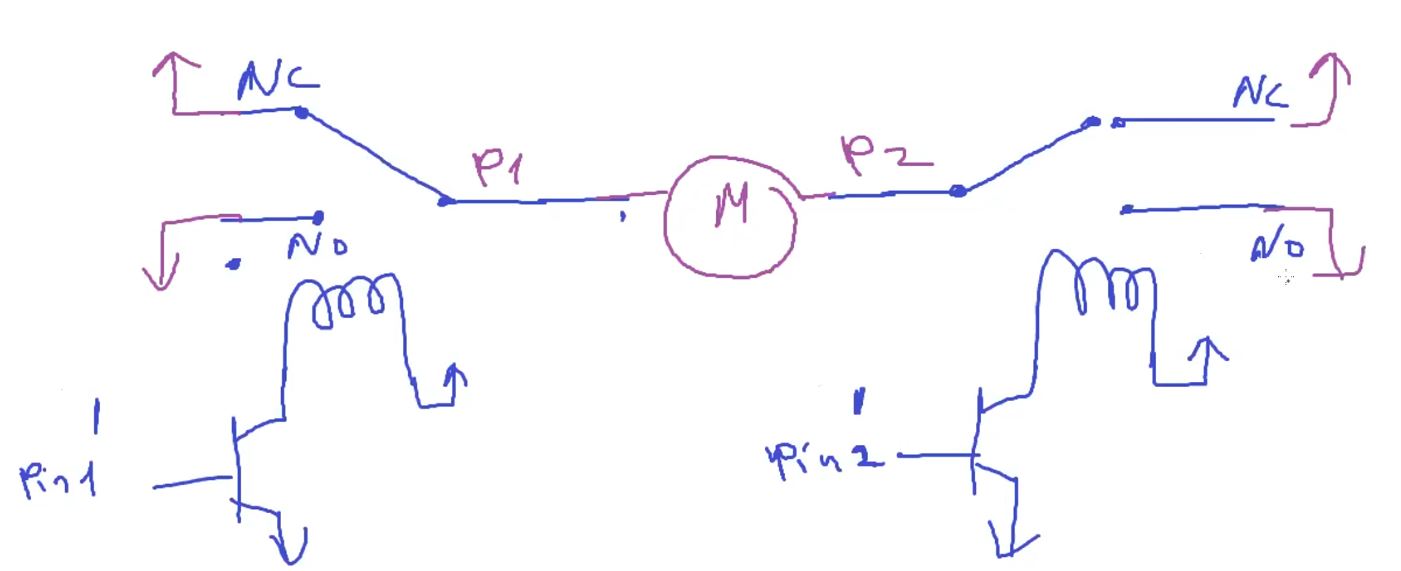 NC
NC
P1
M
P2
NO
NO
Pin1
Pin2